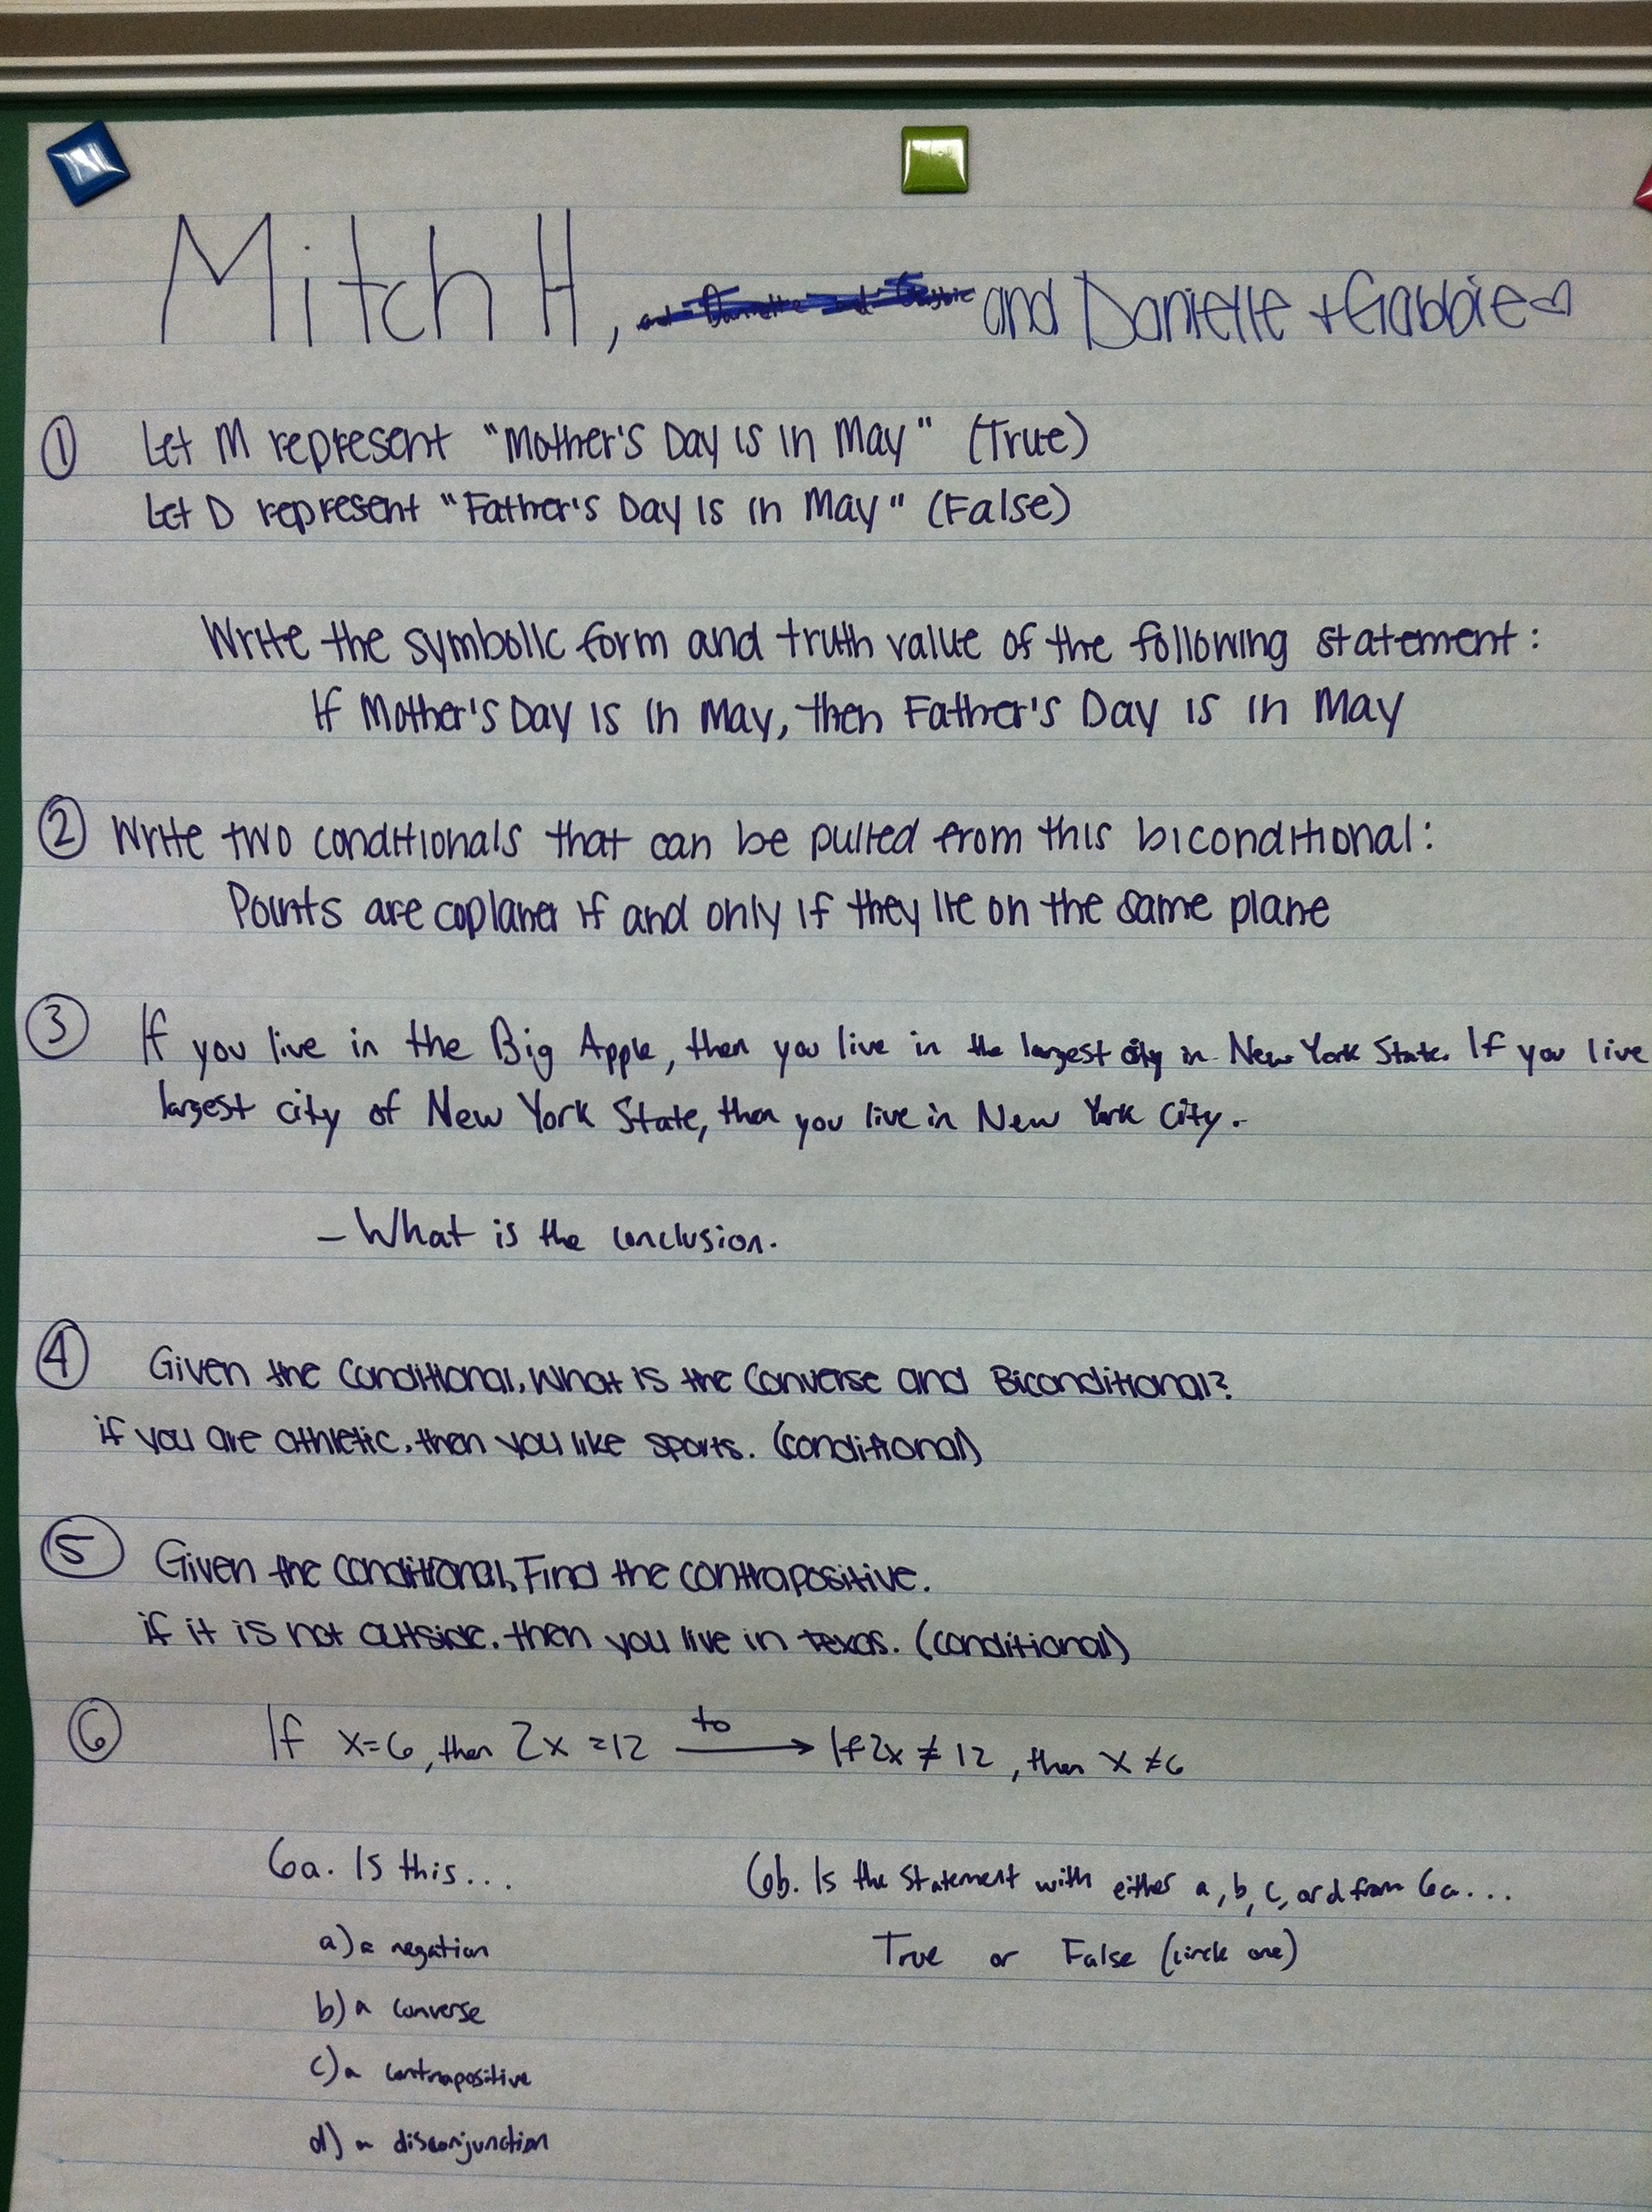 Mitch H, and Danielle + Gabbie♡
① Let M represent "Mother's Day is in May" (True)
Let D represent "Father's Day is in May" (False)
Write the symbolic form and truth value of the following statement:
If Mother's Day is in May, then Father's Day is in May
② Write two conditionals that can be pulled from this biconditional:
Points are coplaner if and only if they lie on the same plane
③ If you live in the Big Apple, then you live in the largest city in New York State. If you live
largest city of New York State, then you live in New York City.
- What is the conclusion.
④ Given the Conditional, What is the Converse and Biconditional?
if you are athletic, then you like sports. (conditional)
⑤ Given the conditional, Find the contrapositive.
if it is not outside, then you live in texas. (conditional)
⑥ If x=6, then 2x=12 to → If 2x≠12, then x≠6
6a. Is this... 6b. Is the statement with either a, b, c, or d from 6a...
a) a negation True or False (circle one)
b) a converse
c) a contrapositive
d) a disconjunction